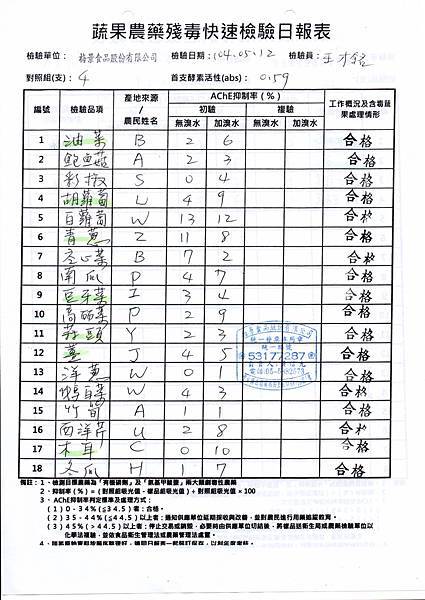 蔬果農藥殘毒快速檢驗日報表
檢驗單位： 梅景食品股份有限公司 檢驗日期：104.05.12 檢驗員：
對照組(支)： 4 首支酵素活性(abs)： 0.59
編號 檢驗品項 產地來源/農民姓名 AChE抑制率(%) 工作概況及含毒蔬果處理情形
初驗 複驗
無溴水 加溴水 無溴水 加溴水
1 油菜 B 2 6 合格
2 鮑魚菇 A 2 3 合格
3 彩椒 S 0 4 合格
4 胡蘿蔔 L 4 9 合格
5 白蘿蔔 W 13 12 合格
6 青蔥 Z 11 8 合格
7 空心菜 B 7 2 合格
8 南瓜 P 4 7 合格
9 豆芽菜 I 3 4 合格
10 高麗菜 P 2 9 合格
11 蒜頭 Y 2 3 合格
12 薑 J 4 5 合格
13 洋蔥 W 0 1 合格
14 娃白菜 W 4 3 合格
15 竹筍 A 1 1 合格
16 西洋芹 U 2 8 合格
17 木耳 C 0 10 合格
18 冬瓜 H 1 7 合格
統一發票專用章
統一編號
53177287
備註：1、檢測目標農藥為「有機磷劑」及「氨基甲酸鹽」兩大類劇毒性農藥
2、抑制率(%)＝(對照組吸光值－樣品組吸光值)÷對照組吸光值×100
3、AChE抑制率判定標準及處理方式：
(1) 0-34%(≦34.5)者：合格。
(2) 35-44%(≦44.5)以上者：通知供應單位延期採收與改善，並對農民進行用藥追蹤教育。
(3) 45%(＞44.5)以上者：停止交易或銷毀，必要時由供應單位切結後，將樣品送衛生局或農藥檢驗單位以
化學法複驗，並依食品衛生管理法或農藥管理法處置。